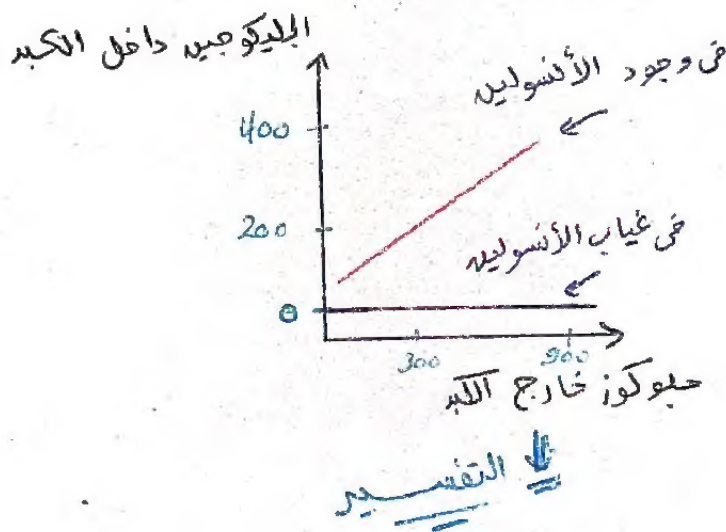 الجليكوجين داخل الكبد
فى وجود الأنسولين
400
200
فى غياب الأنسولين
0
300
900
جلوكوز خارج الكبد
التفسير